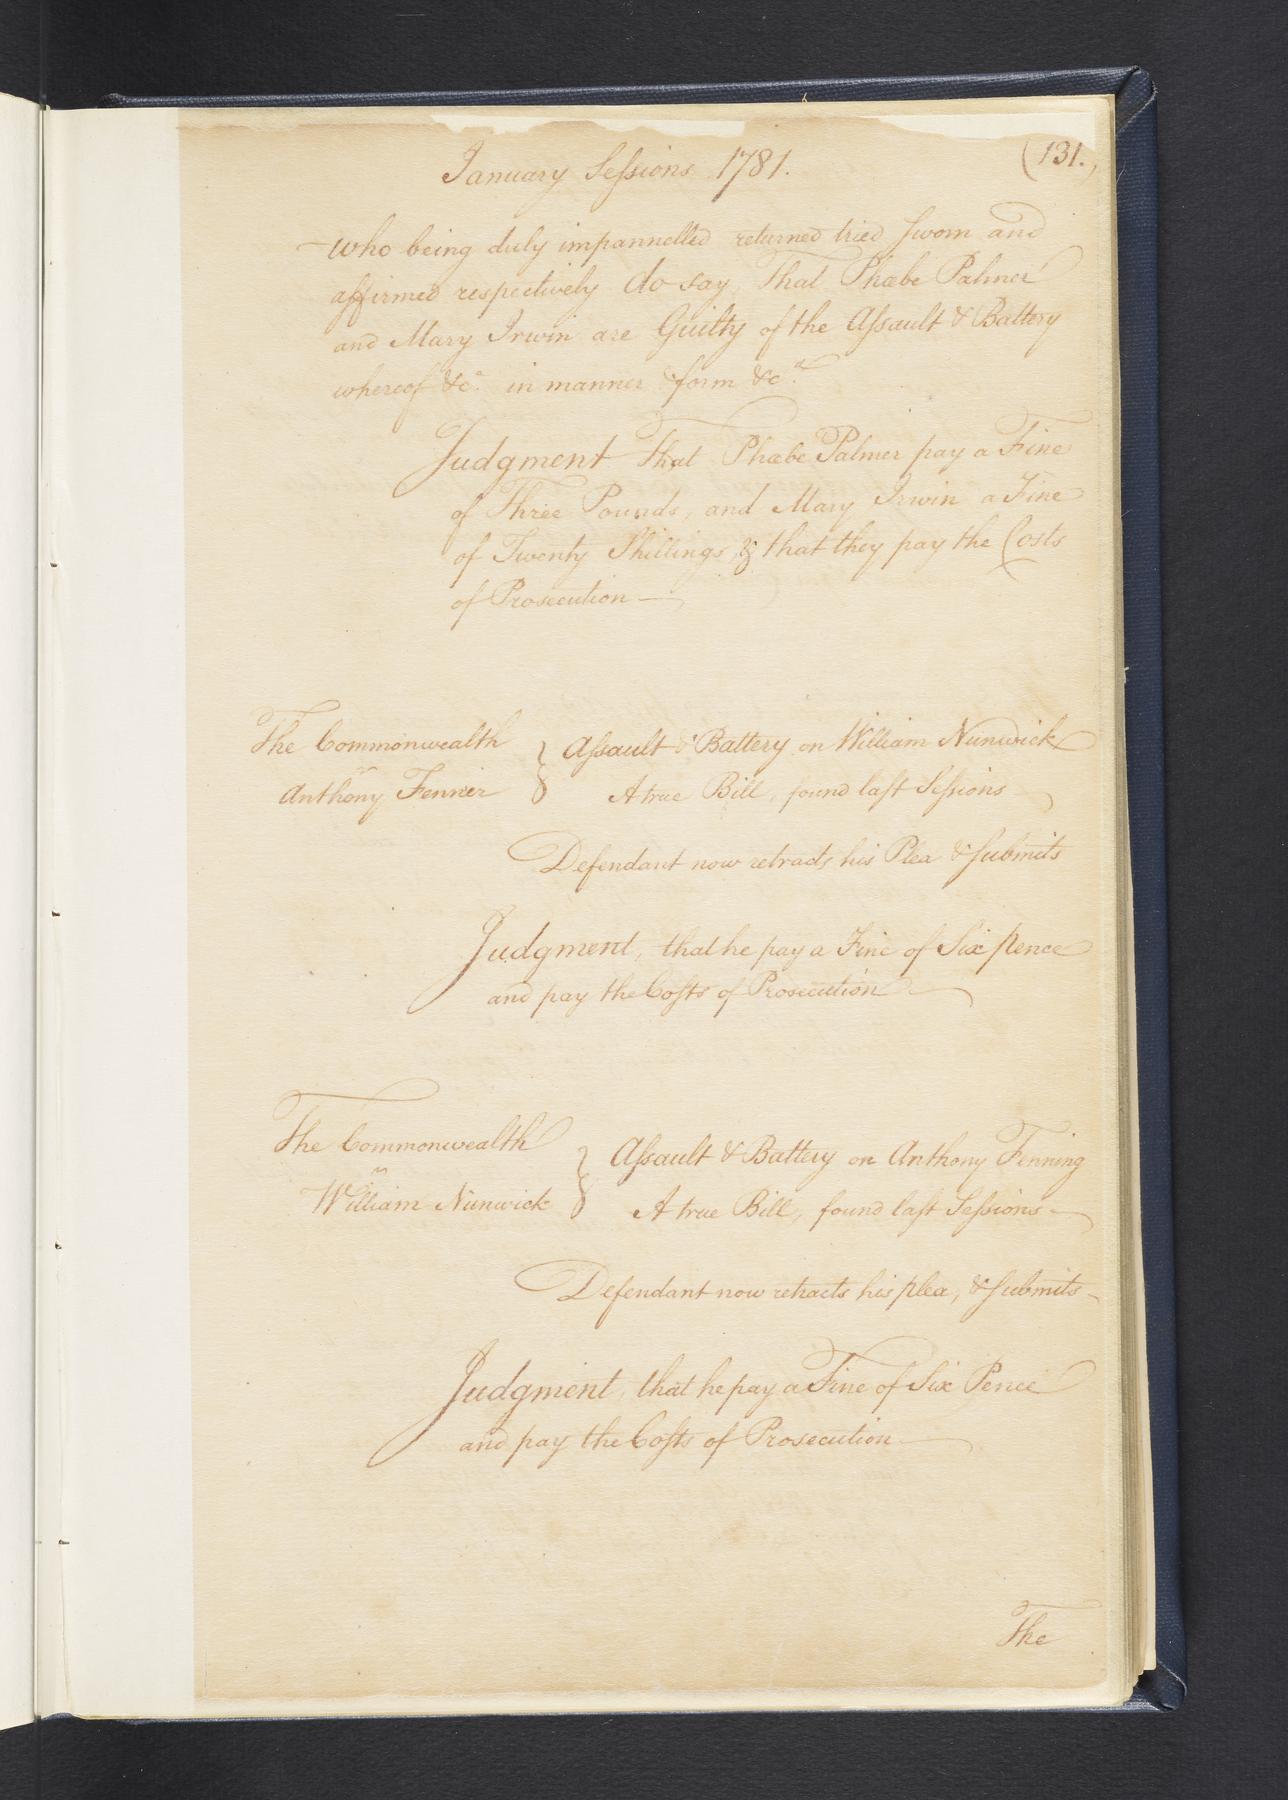 January Sessions 1781.
(131.)
who being duly impannelled returned tried sworn and
affirmed respectively do say, That Phœbe Palmer
and Mary Irwin are Guilty of the Assault & Battery
whereof &c. in manner & form &c.
Judgment That Phœbe Palmer pay a Fine
of Three Pounds, and Mary Irwin a Fine
of Twenty Shillings, & that they pay the Costs
of Prosecution
The Commonwealth
Anthony Fenner
Assault & Battery on William Nunwick
A true Bill, found last Sessions
Defendant now retracts his Plea & submits
Judgment, that he pay a Fine of Six Pence
and pay the Costs of Prosecution
The Commonwealth
William Nunwick
Assault & Battery on Anthony Fenning
A true Bill, found last Sessions
Defendant now retracts his plea, & submits
Judgment, that he pay a Fine of Six Pence
and pay the Costs of Prosecution
The